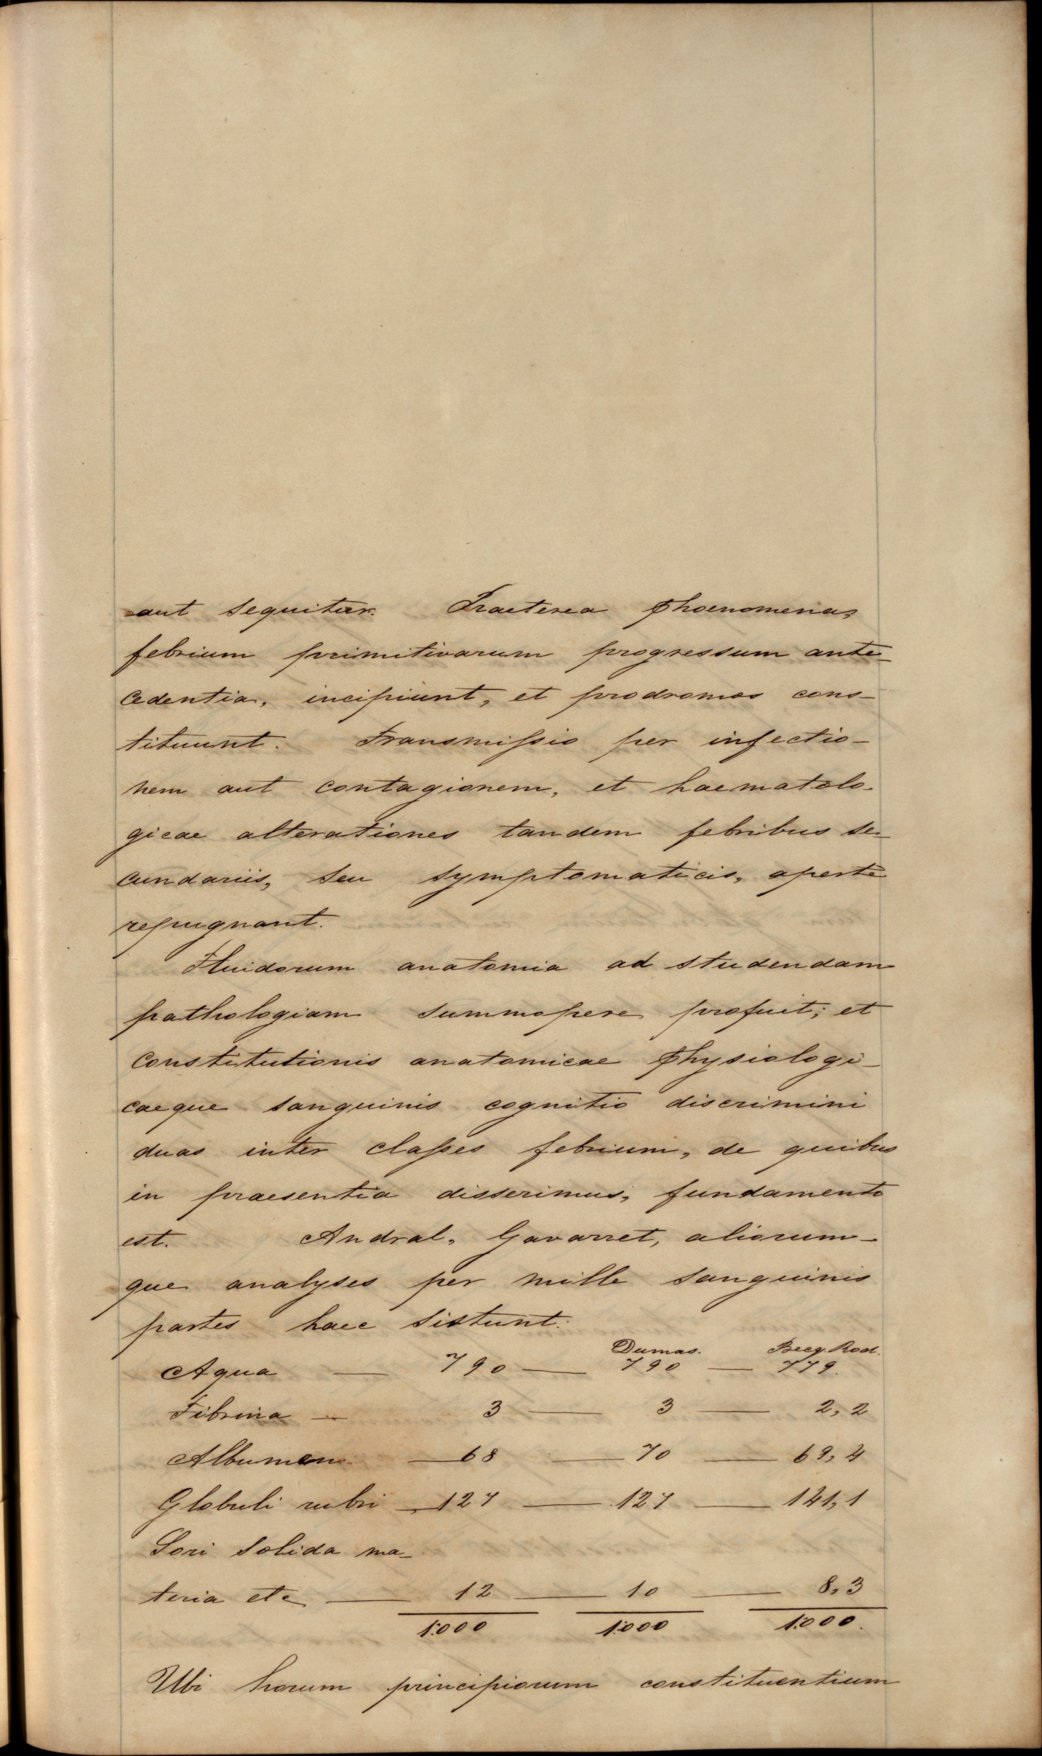 aut sequitur. Praeterea phoenomena,
febrium primitivarum progressum ante-
cedentia, incipiunt, et prodromos cons-
tituunt. Transmissio per infectio-
nem aut contagionem, et haematolo-
gicae alterationes tandem febribus se-
cundariis, seu symptomaticis, aperte
repugnant.
Fluidorum anatomia ad studendam
pathologiam summopere profuit; et
constitutionis anatomicae physiologi-
caeque sanguinis cognitio discrimini
duas inter classes febrium, de quibus
in praesentia disserimus, fundamento
est. Andral, Gavarret, aliorum-
que analyses per mille sanguinis
partes haec sistunt:
Dumas. Becq. Rod.
Aqua — 790 — 790 — 779.
Fibrina — 3 — 3 — 2,2
Albumen — 68 — 70 — 69,4
Globuli rubri — 127 — 127 — 141,1
Seri solida ma-
teria etc — 12 — 10 — 8,3
1:000 1:000 1:000.
Ubi horum principiorum constituentium